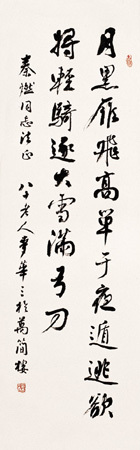 月黑雁飛高單于夜遁逃欲
將輕騎逐大雪滿弓刀
秦燃同志法正
八十老人夢華之於萬簡樓